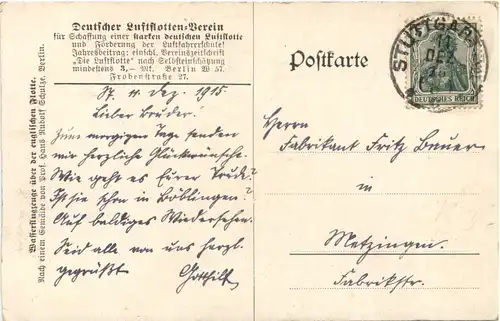 Deutscher Luftflotten-Verein
für Schaffung einer starken deutschen Luftflotte
und Förderung der Luftfahrerschule!
Jahresbeitrag: einschl. Vereinszeitschrift
„Die Luftflotte" nach Selbsteinschätzung
mindestens 3.– Mk. Berlin W 57.
Frobenstraße 27.
Wasserflugzeuge über der englischen Flotte.
Nach einem Gemälde von Prof. Hans Rudolf Schulze, Berlin.
St. 4. Dez. 1915
Lieber Bruder.
Zum morgigen Tage senden
wir herzliche Glückwünsche.
Wie geht es Eurer Trude?
Ist sie schon in Böblingen?
Auf baldiges Wiedersehen.
Seid alle von uns herzl.
gegrüßt Gotthilf
Postkarte
STUTTGART
DEZ
DEUTSCHES REICH
Herrn
Fabrikant Fritz Bauer
in
Metzingen.
Fabrikstr.